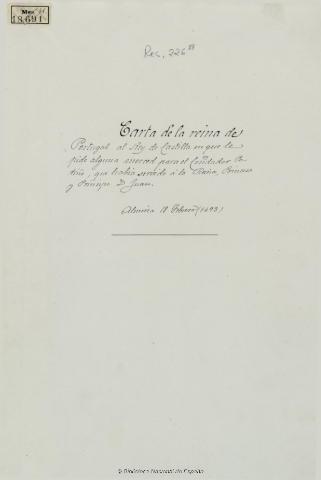 Mss.
18.691
Res. 226
Carta de la reina de
Portugal al Rey de Castilla en que le
pide alguna merced para el Contador
que habia servido á la Reina, Princesa
y Principe D. Juan.
Almeirin 18 Febrero (1498)
© Biblioteca Nacional de España